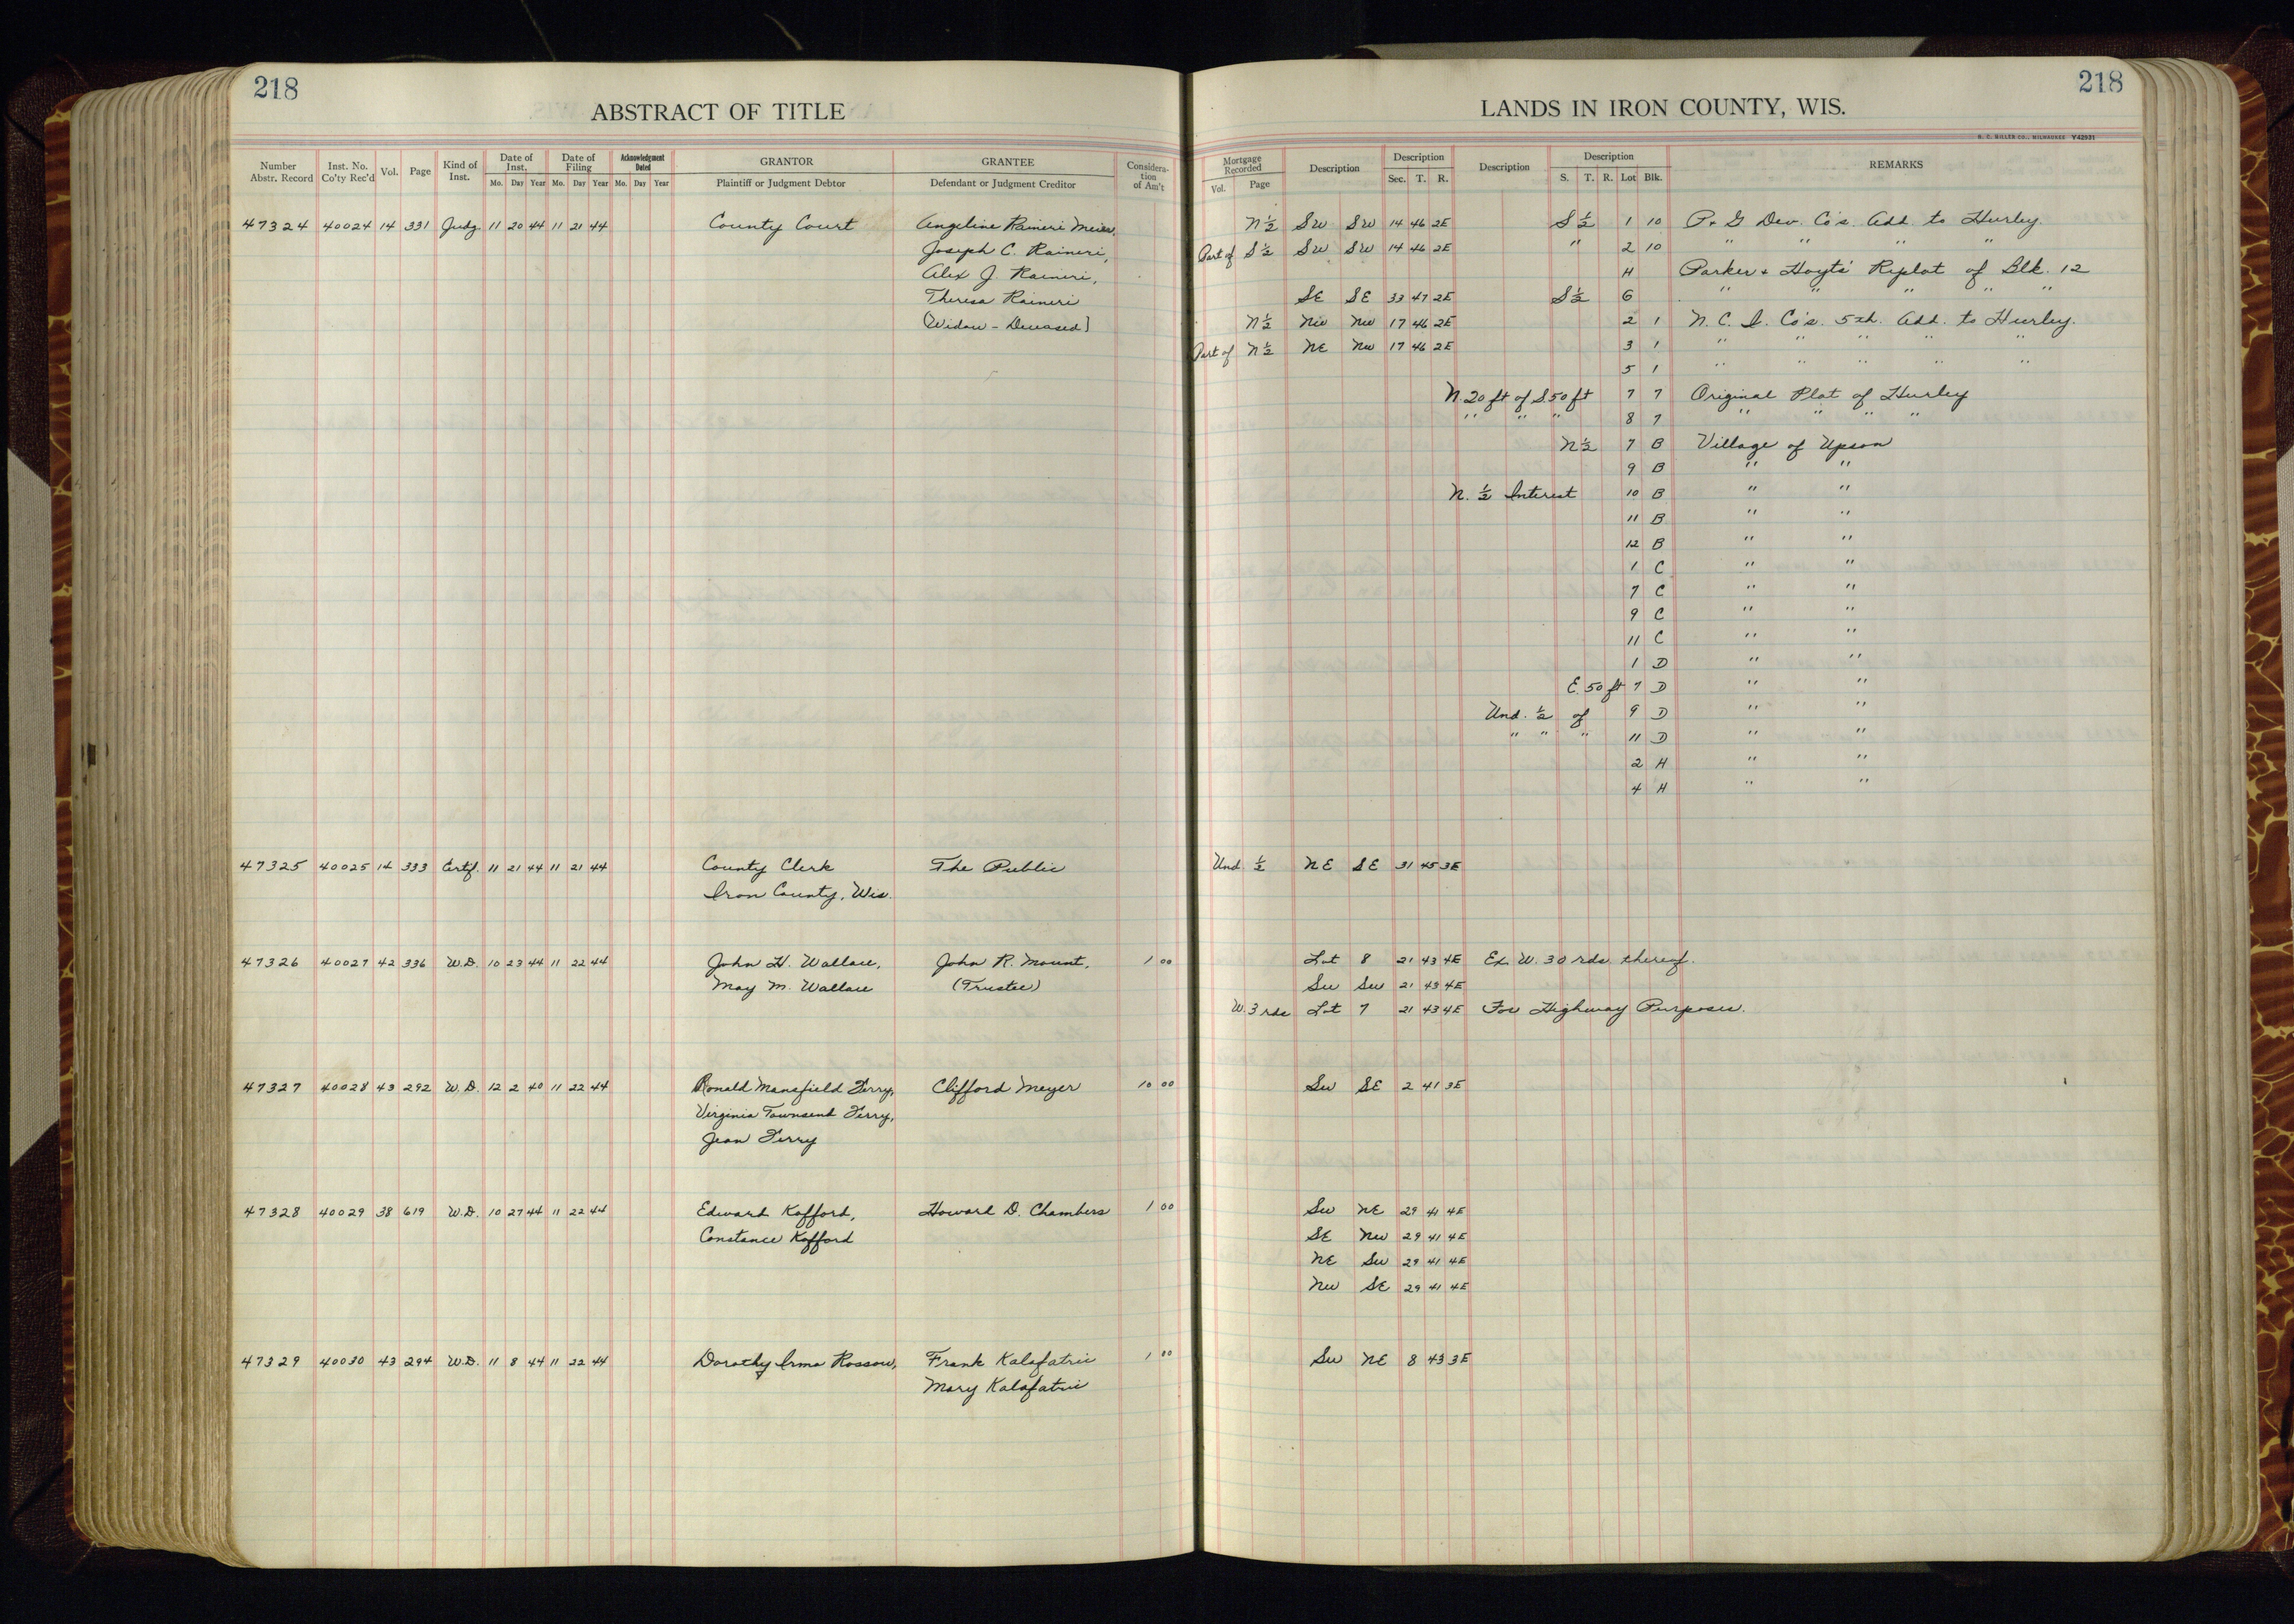 218
ABSTRACT OF TITLE
Number Abstr. Record | Inst. No. Co'ty Rec'd | Vol. | Page | Kind of Inst. | Date of Inst. Mo. Day Year | Date of Filing Mo. Day Year | Acknowledgment Dated Mo. Day Year | GRANTOR Plaintiff or Judgment Debtor | GRANTEE Defendant or Judgment Creditor | Consideration of Am't
47324 40024 14 331 Judg. 11 20 44 11 21 44 County Court Angeline Raineri Meier,
Joseph C. Raineri,
Alex J. Raineri,
Theresa Raineri
(Widow - Deceased)
47325 40025 14 333 Certif. 11 21 44 11 21 44 County Clerk The Public
Iron County, Wis.
47326 40027 42 336 W.D. 10 23 44 11 22 44 John H. Wallace, John R. Mount, 1 00
May M. Wallace (Trustee)
47327 40028 43 292 W.D. 12 2 40 11 22 44 Ronald Mansfield Ferry, Clifford Meyer 10 00
Virginia Townsend Ferry,
Jean Ferry
47328 40029 38 619 W.D. 10 27 44 11 22 44 Edward Kofford, Howard D. Chambers 1 00
Constance Kofford
47329 40030 43 294 W.D. 11 8 44 11 22 44 Dorothy Irma Rossow, Frank Kalafatric 1 00
Mary Kalafatric
218
LANDS IN IRON COUNTY, WIS.
H. C. MILLER CO., MILWAUKEE Y42931
Mortgage Recorded Vol. Page | Description | Description Sec. T. R. | Description | Description S. T. R. Lot Blk. | REMARKS
N ½ SW SW 14 46 2E S ½ 1 10 P & G Dev. Co's. Add. to Hurley.
Part of S ½ SW SW 14 46 2E " 2 10 " " " "
H Parker & Hoyts' Replat of Blk. 12
SE SE 33 47 2E S ½ 6 " " " " "
N ½ NW NW 17 46 2E 2 1 N. C. I. Co's. 5th. Add. to Hurley.
Part of N ½ NE NW 17 46 2E 3 1 " " " " "
5 1 " " " " "
N. 20 ft of S 50 ft 7 7 Original Plat of Hurley
" " " 8 7 " " " "
N ½ 7 B Village of Upson
9 B " "
N. ½ Interest 10 B " "
11 B " "
12 B " "
1 C " "
7 C " "
9 C " "
11 C " "
1 D " "
E. 50 ft 7 D " "
Und. ½ of 9 D " "
" " " 11 D " "
2 H " "
4 H " "
Und. ½ NE SE 31 45 3E
Lot 8 21 43 4E Ex. W. 30 rds. thereof.
SW SW 21 43 4E
W. 3 rds Lot 7 21 43 4E For Highway Purposes.
SW SE 2 41 3E
SW NE 29 41 4E
SE NW 29 41 4E
NE SW 29 41 4E
NW SE 29 41 4E
SW NE 8 43 3E